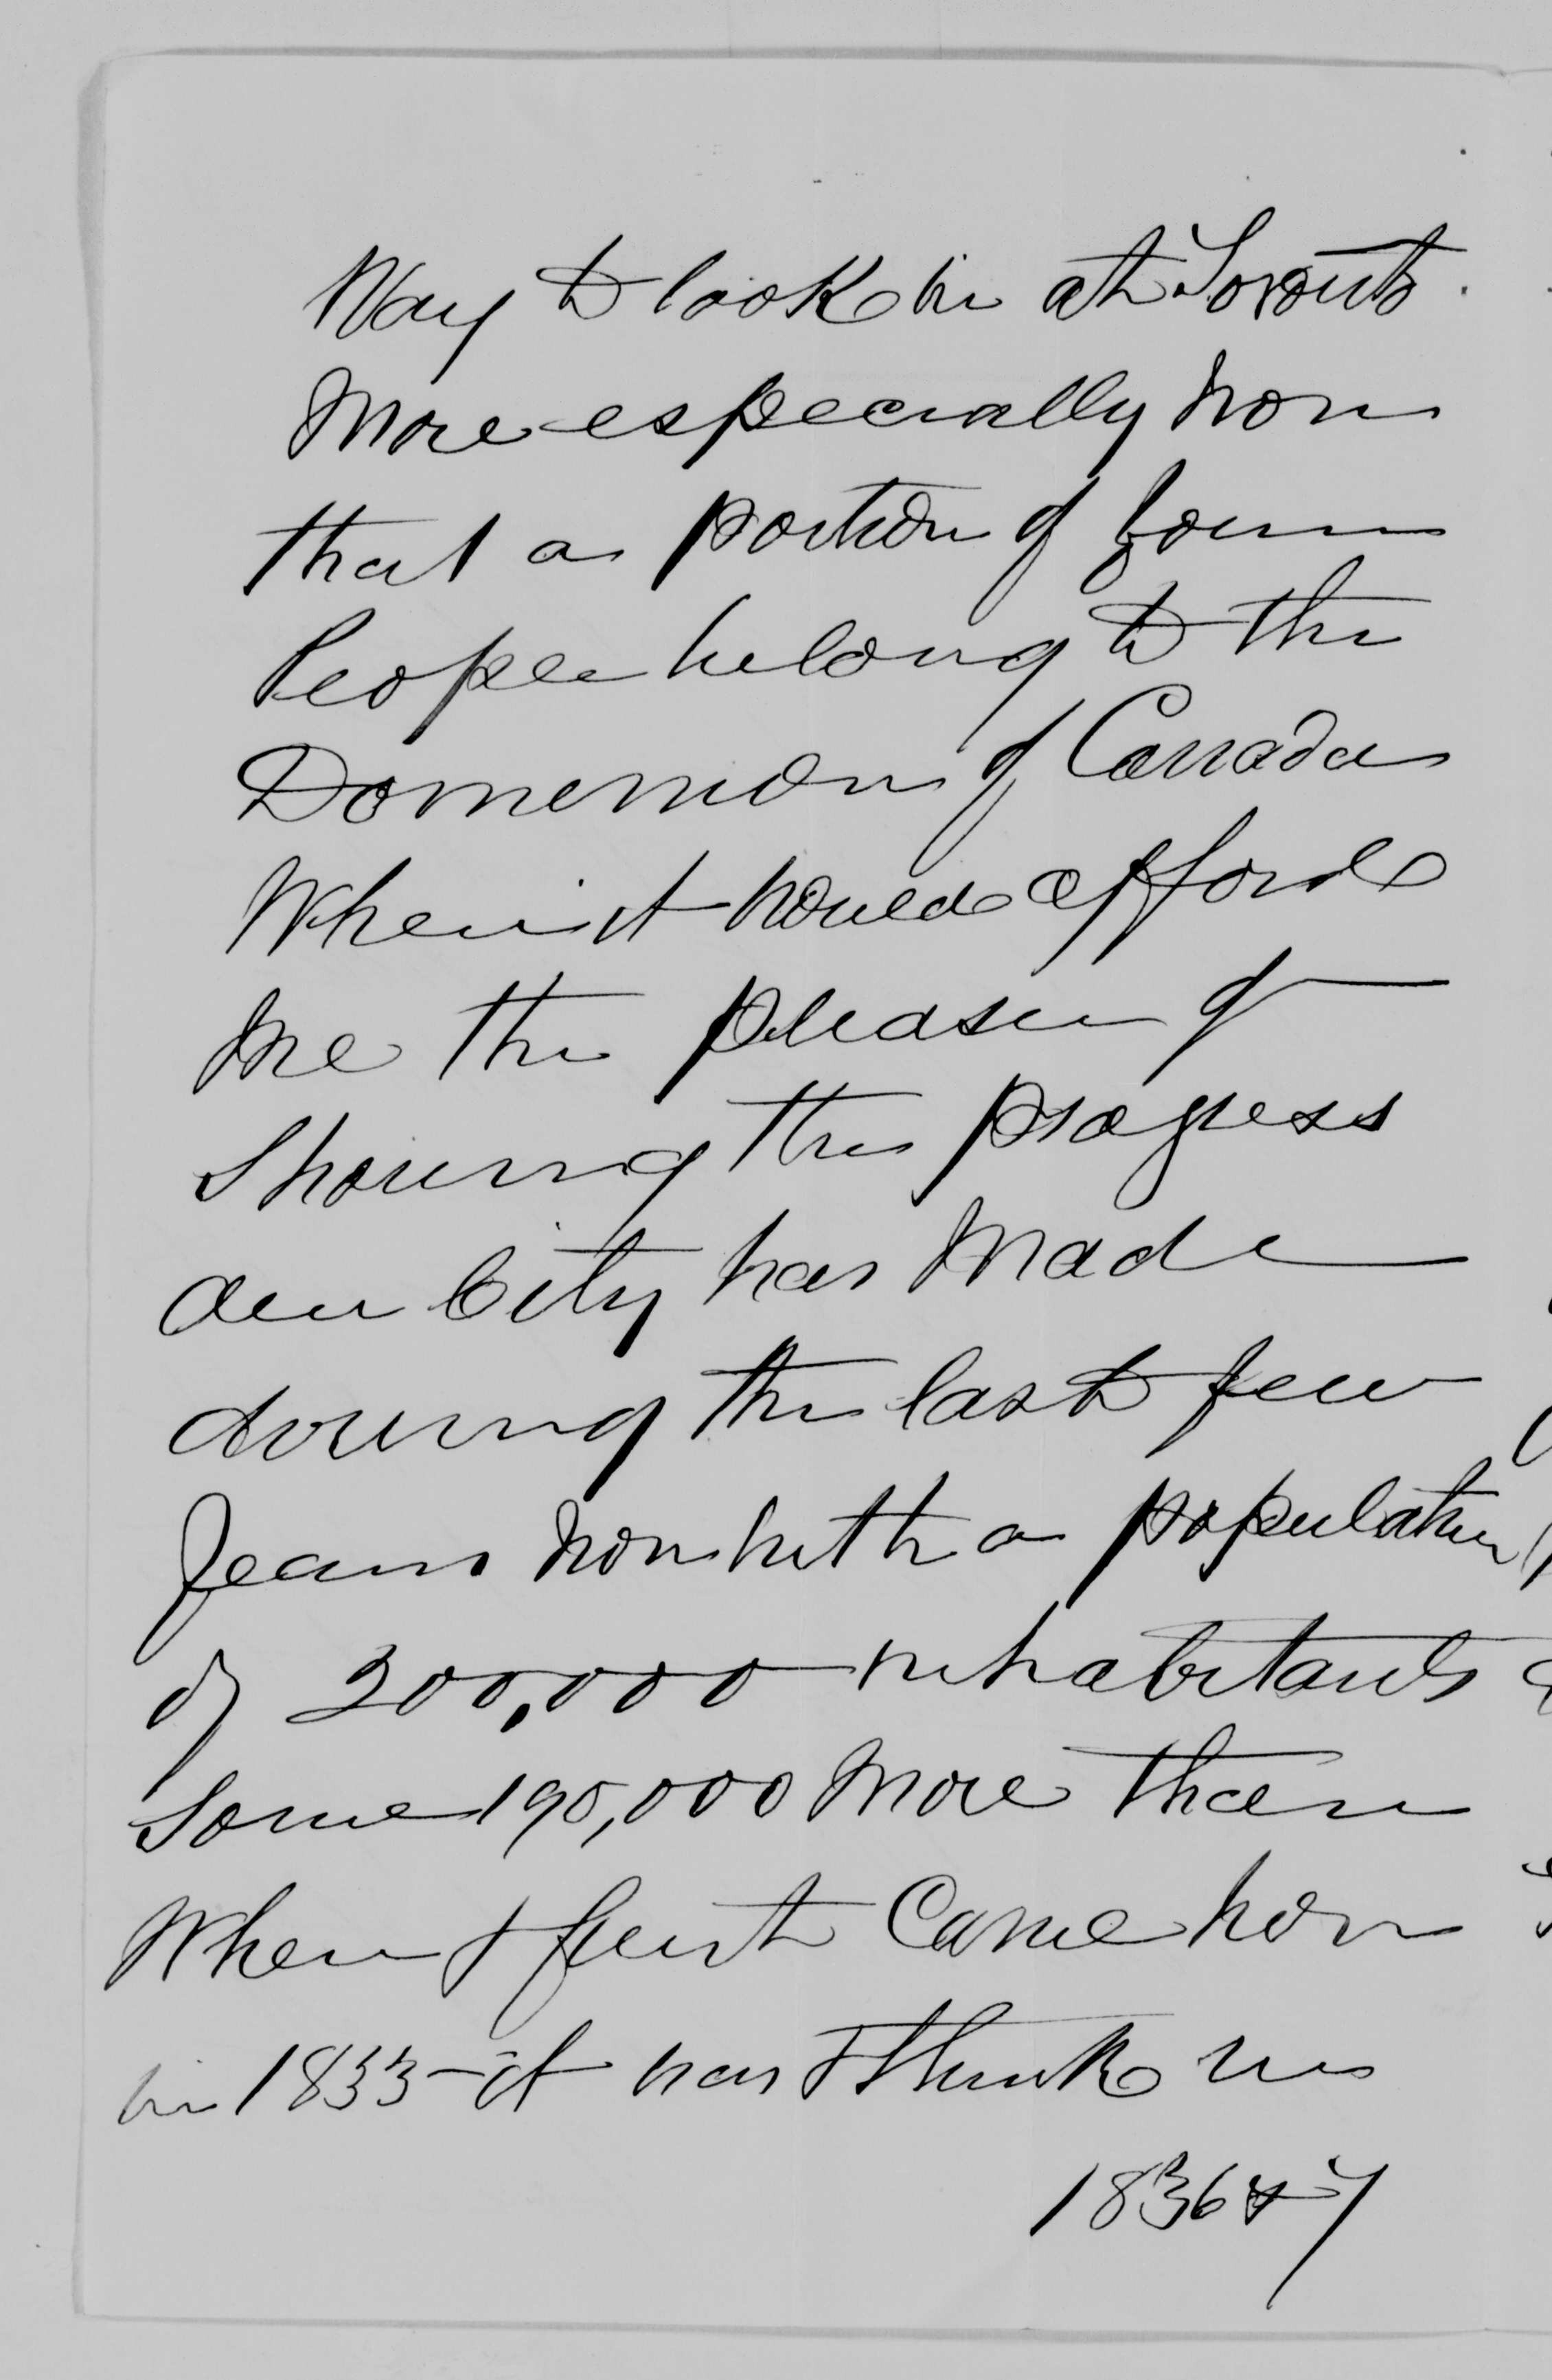 Way to look in at Toronto.
More especially now
that a portion of your
People belong to the
Domenion of Canada
When it would afford
me the pleasure of
Showing the progress
our City has Made
during the last few
years now with a population
of 200,000 inhabitants
Some 190,000 More than
When I first Came here
in 1833 - it was I think in
1836 & 7